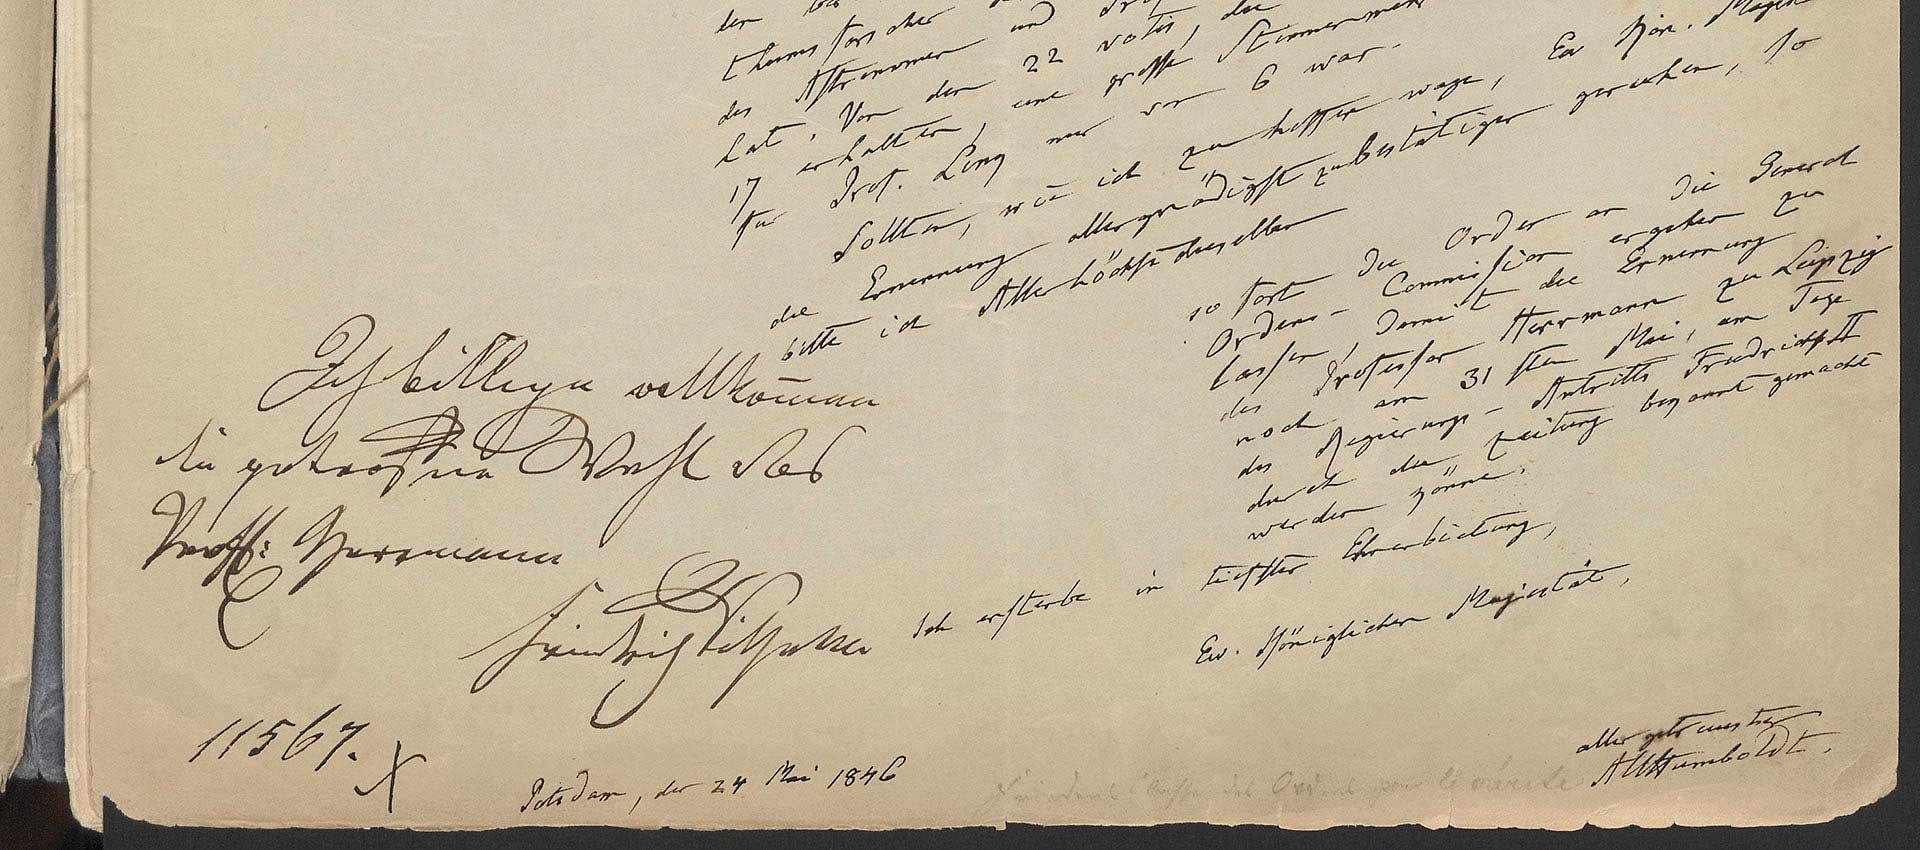 thumsforscher
des Astronomen und
hat. Von den 22 votis, die
17 erhalten, eine grosse Stimmenmehr
für Prof. Lenz nur vor 6 war.
Sollten, wie ich zu hoffen wage, Ew Kön. Majes
die Ernennung allergnädigst zu bestätigen geruhen, so
bitte ich Allerhöchstdieselben
sofort die Order an die General
Ordens-Commission ergehen zu
lassen, damit die Ernennung
des Professor Herrmann zu Leipzig
noch am 31sten Mai, am Tage
des Regierungs-Antritts Friedrichs II
durch die Zeitung bekannt gemacht
werden könne.
Ich ersterbe in tiefster Ehrerbietung,
Ew. Königlichen Majestät,
allergetreuster
AlHumboldt.
Potsdam, den 24 Mai 1846
Ich billige vollkom̅en
die getroffene Wahl des
Proff: Herrmann
Friedrich Wilhelm
11567.
Friedens Classe des Ordens pour le mérite